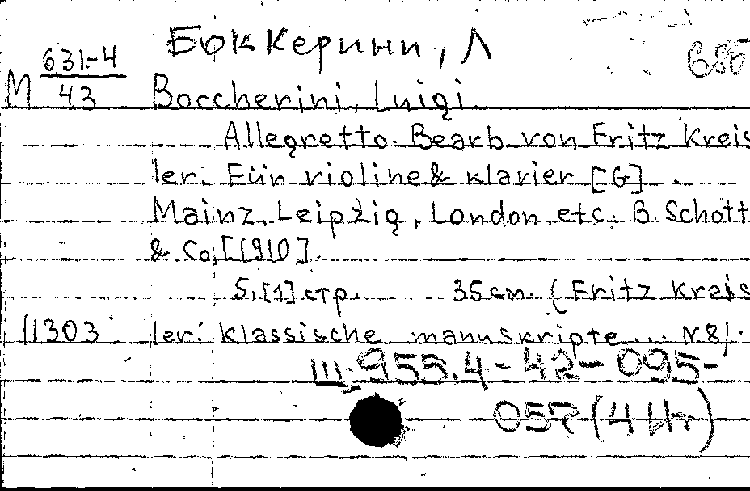 Боккерини, Л
М 631-4 / 43
Boccherini, Luigi.
Allegretto. Bearb von Fritz Kreis
ler. Für violine & klavier [G].
Mainz, Leipzig, London etc. B. Schott
& Co, [1910].
5, [1] стр. 35 см. (Fritz Kreis
11303 ler: klassische manuskripte... N.8).
Ш.955.4-42-095-
057 (4 Нг)